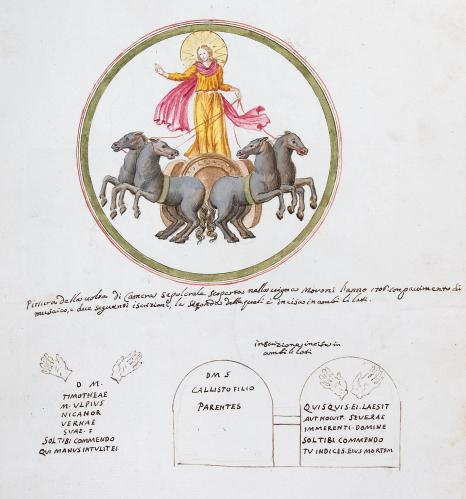 Pittura della volta di Camera sepolcrale scoperta nella vigna Moroni l'anno 1706 con pavimento di
musaico, e due seguenti iscrizioni, la seconda delle quali è incisa in ambi li lati.
D M.
TIMOTHEAE
M. VLPIVS
NICANOR
VERNAE
SVAE. F
SOL TIBI COMMENDO
QUI MANUS INTULIT EI.
inscrizione incisa in
ambi li lati
D M S
CALLISTO FILIO
PARENTES
QUISQUIS. EI. LAESIT
AUT NOCUIT. SEVERAE
IMMERENTI. DOMINE
SOL TIBI COMMENDO
TV INDICES. EIUS MORTEM